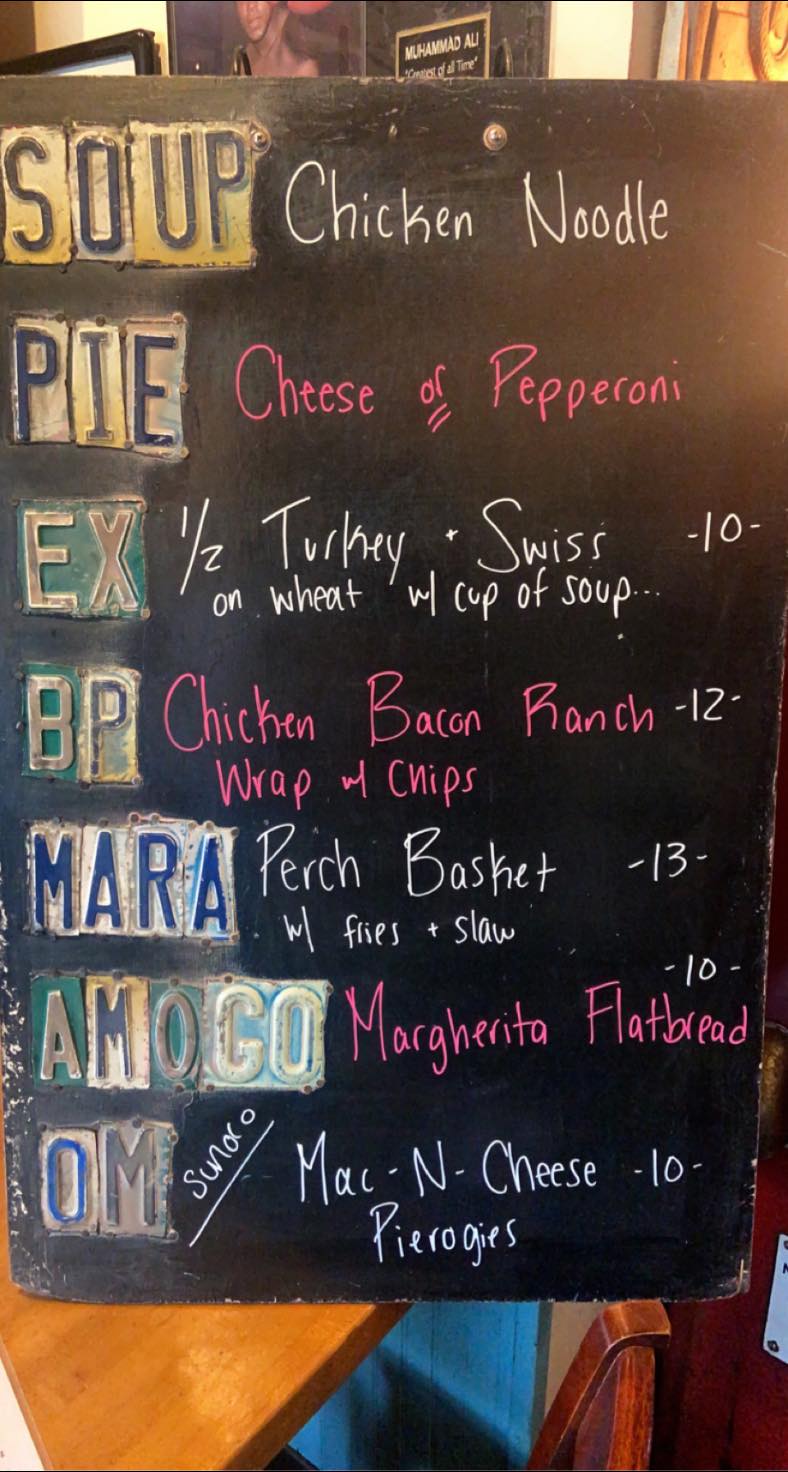 MUHAMMAD ALI
"Greatest of all Time"
SOUP Chicken Noodle
PIE Cheese or Pepperoni
EX 1/2 Turkey + Swiss -10-
on wheat w/ cup of soup...
BP Chicken Bacon Ranch -12-
Wrap w/ Chips
MARA Perch Basket -13-
w/ fries + slaw
-10-
AMOCO Margherita Flatbread
OM Sunoco/ Mac-N-Cheese -10-
Pierogies